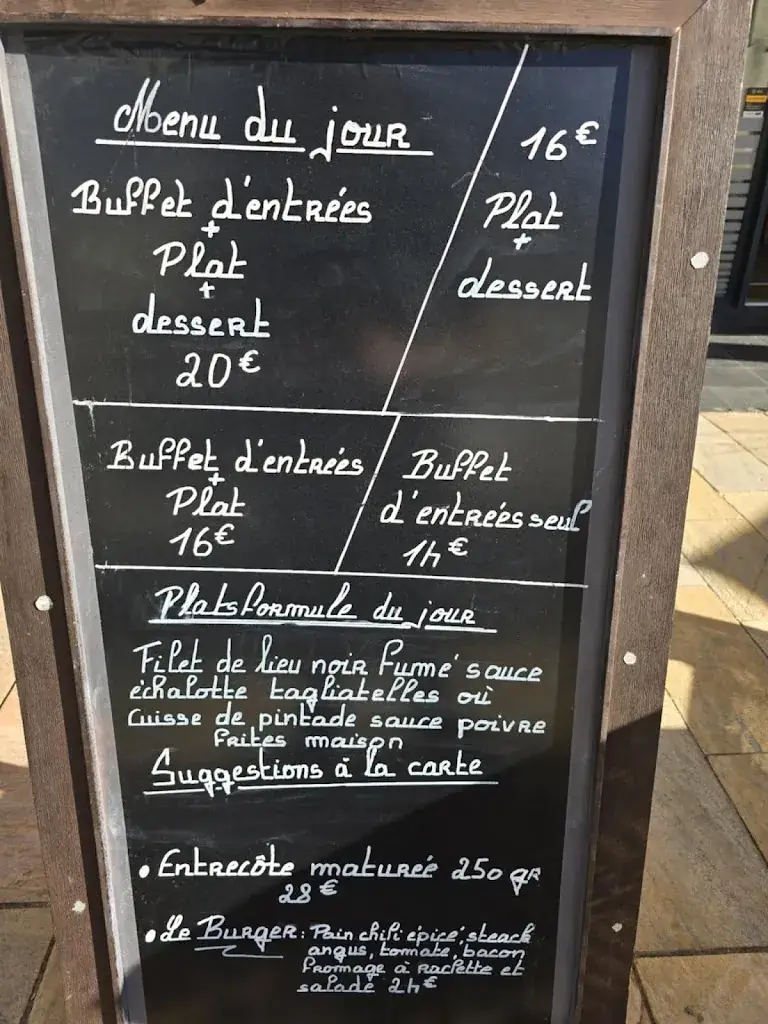 Menu du jour
Buffet d'entrées
+
Plat
+
dessert
20€
16€
Plat
+
dessert
Buffet d'entrées
+
Plat
16€
Buffet
d'entrées seul
14€
Plats formule du jour
Filet de lieu noir fumé sauce
échalotte tagliatelles où
Cuisse de pintade sauce poivre
frites maison
Suggestions à la carte
• Entrecôte maturée 250 gr
28€
• Le Burger: Pain chili épicé, steack
angus, tomate, bacon
fromage à raclette et
salade 24€